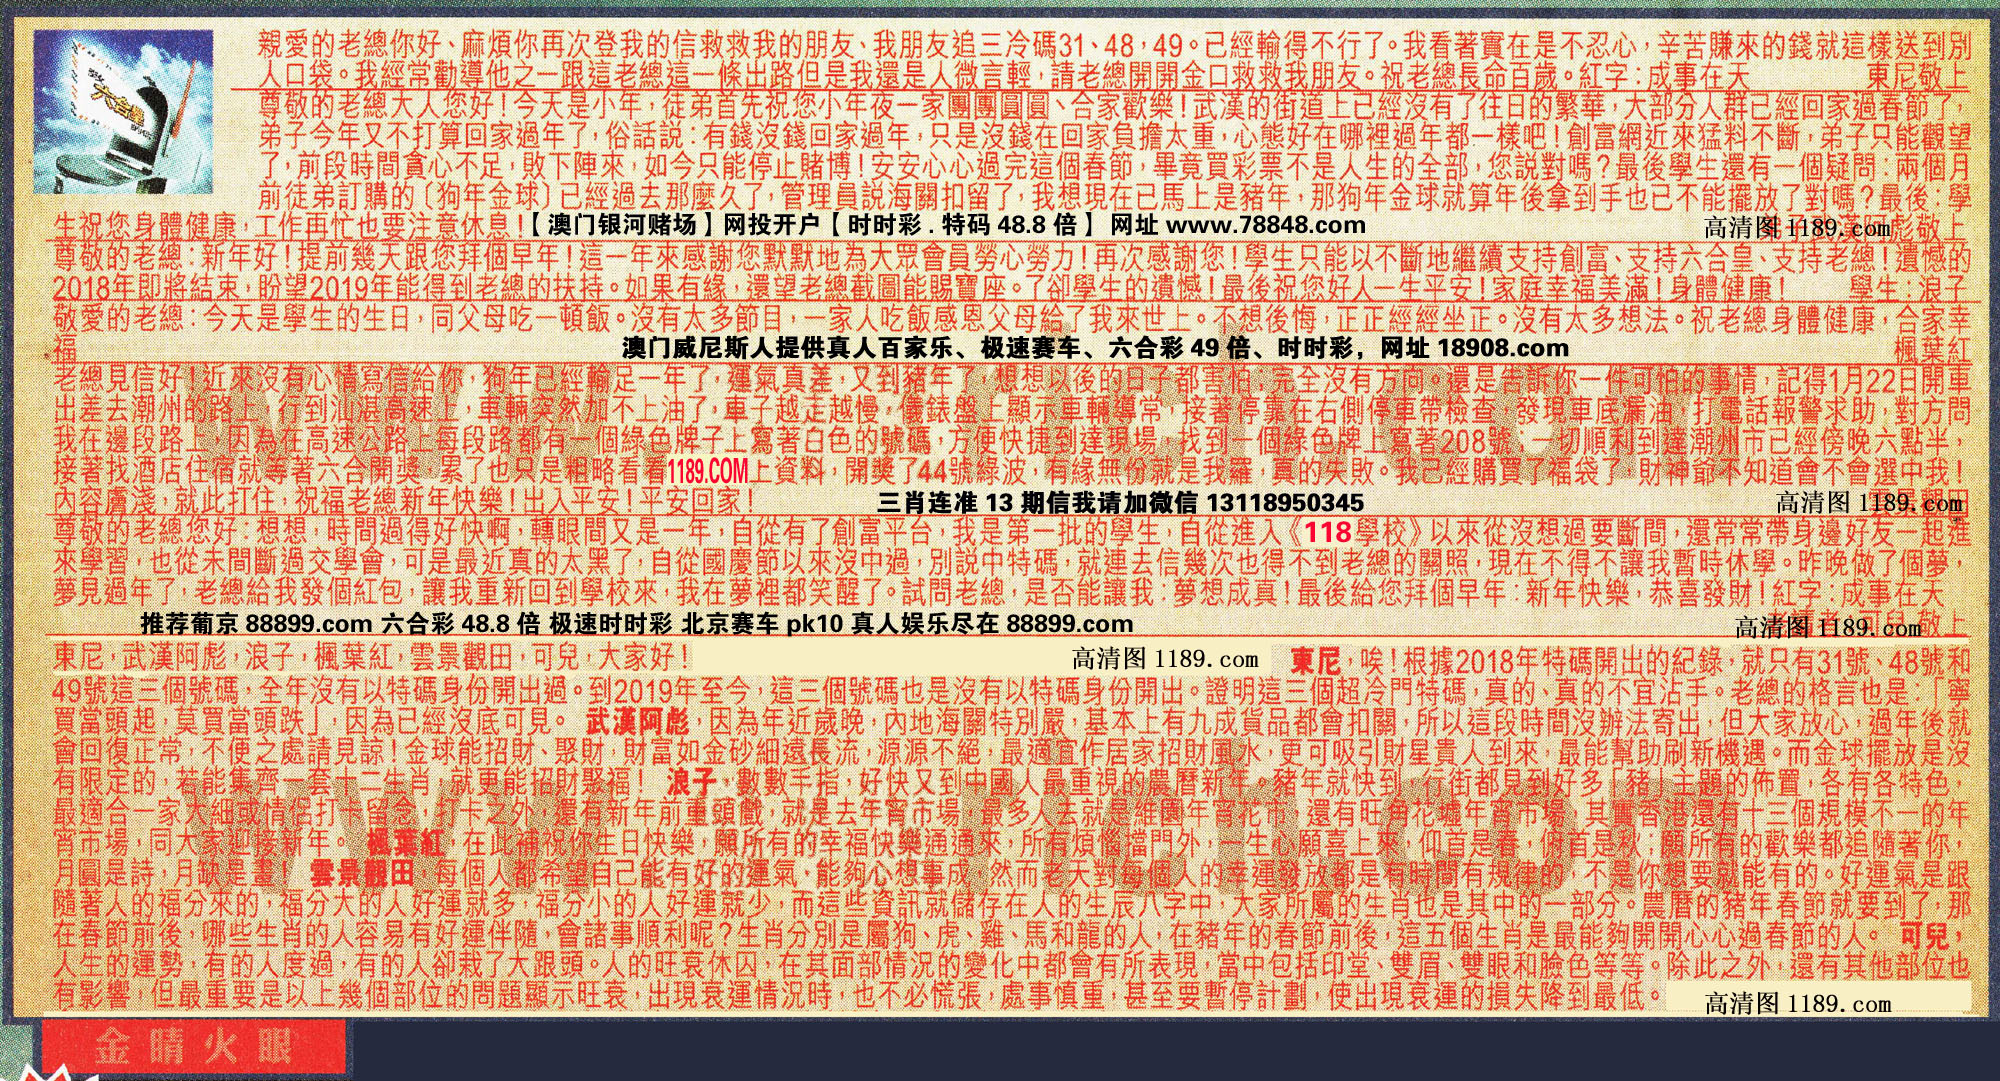 親愛的老總你好、麻煩你再次登我的信救救我的朋友、我朋友追三冷碼31、48，49。已經輸得不行了。我看著實在是不忍心，辛苦賺來的錢就這樣送到別
人口袋。我經常勸導他之一跟這老總這一條出路但是我還是人微言輕，請老總開開金口救救我朋友。祝老總長命百歲。紅字：成事在天 東尼敬上
尊敬的老總大人您好！今天是小年，徒弟首先祝您小年夜一家團團圓圓、合家歡樂！武漢的街道上已經沒有了往日的繁華，大部分人群已經回家過春節了，
弟子今年又不打算回家過年了，俗話説：有錢沒錢回家過年，只是沒錢在回家負擔太重，心態好在哪裡過年都一樣吧！創富網近來猛料不斷，弟子只能觀望
了，前段時間貪心不足，敗下陣來，如今只能停止賭博！安安心心過完這個春節，畢竟買彩票不是人生的全部，您説對嗎？最後學生還有一個疑問：兩個月
前徒弟訂購的〔狗年金球〕已經過去那麼久了，管理員説海關扣留了，我想現在已馬上是豬年，那狗年金球就算年後拿到手也已不能擺放了對嗎？最後：學
生祝您身體健康，工作再忙也要注意休息！【澳门银河赌场】网投开户【时时彩 . 特码 48.8 倍】 网址 www.78848.com 高清图 1189.com 彪敬上
尊敬的老總：新年好！提前幾天跟您拜個早年！這一年來感謝您默默地為大眾會員勞心勞力！再次感謝您！學生只能以不斷地繼續支持創富、支持六合皇、支持老總！遺憾的
2018年即將結束，盼望2019年能得到老總的扶持。如果有緣，還望老總截圖能賜寶座。了卻學生的遺憾！最後祝您好人一生平安！家庭幸福美滿！身體健康！ 學生：浪子
敬愛的老總：今天是學生的生日，同父母吃一頓飯。沒有太多節目，一家人吃飯感恩父母給了我來世上。不想後悔，正正經經坐正。沒有太多想法。祝老總身體健康，合家幸
福 澳门威尼斯人提供真人百家乐、极速赛车、六合彩 49 倍、时时彩，网址 18908.com 楓葉紅
老總見信好！近來沒有心情寫信給你，狗年已經輸足一年了，運氣真差，又到豬年了，想想以後的日子都害怕，完全沒有方向。還是告訴你一件可怕的事情，記得1月22日開車
出差去潮州的路上，行到汕湛高速上，車輛突然加不上油了，車子越走越慢，儀錶盤上顯示車輛導常，接著停靠在右側停車帶檢查，發現車底漏油，打電話報警求助，對方問
我在邊段路上，因為在高速公路上每段路都有一個綠色牌子上寫著白色的號碼，方便快捷到達現場，找到一個綠色牌上寫著208號，一切順利到達潮州市已經傍晚六點半，
接著找酒店住宿就等著六合開獎，累了也只是粗略看看1189.COM上資料，開獎了44號綠波，有緣無份就是我羅，真的失敗。我已經購買了福袋了，財神爺不知道會不會選中我！
內容膚淺，就此打住，祝福老總新年快樂！出入平安！平安回家！ 三肖连准 13 期信我请加微信 13118950345 高清图 1189.com
尊敬的老總您好：想想，時間過得好快啊，轉眼間又是一年，自從有了創富平台，我是第一批的學生，自從進入《118學校》以來從沒想過要斷間，還常常帶身邊好友一起進
來學習，也從未間斷過交學會，可是最近真的太黑了，自從國慶節以來沒中過，別説中特碼，就連去信幾次也得不到老總的關照，現在不得不讓我暫時休學。昨晚做了個夢，
夢見過年了，老總給我發個紅包，讓我重新回到學校來，我在夢裡都笑醒了。試問老總，是否能讓我：夢想成真！最後給您拜個早年：新年快樂，恭喜發財！紅字：成事在天
推荐葡京 88899.com 六合彩 48.8 倍 极速时时彩 北京赛车 pk10 真人娱乐尽在 88899.com 高清图 1189.com 敬上
東尼，武漢阿彪，浪子，楓葉紅，雲景觀田，可兒，大家好！ 高清图 1189.com 東尼，唉！根據2018年特碼開出的紀錄，就只有31號、48號和
49號這三個號碼，全年沒有以特碼身份開出過。到2019年至今，這三個號碼也是沒有以特碼身份開出。證明這三個超冷門特碼，真的、真的不宜沾手。老總的格言也是：「寧
買當頭起，莫買當頭跌」，因為已經沒底可見。 武漢阿彪，因為年近歲晚，內地海關特別嚴，基本上有九成貨品都會扣關，所以這段時間沒辦法寄出，但大家放心，過年後就
會回復正常，不便之處請見諒！金球能招財、聚財，財富如金砂細遠長流，源源不絕，最適宜作居家招財風水，更可吸引財星貴人到來，最能幫助刷新機遇。而金球擺放是沒
有限定的，若能集齊一套十二生肖，就更能招財聚福！ 浪子，數數手指，好快又到中國人最重視的農曆新年。豬年就快到，行街都見到好多「豬」主題的佈置，各有各特色，
最適合一家大細或情侶打卡留念，打卡之外，還有新年前重頭戲，就是去年宵市場，最多人去就是維園年宵花市，還有旺角花墟年宵市場，其實香港還有十三個規模不一的年
宵市場，同大家迎接新年。 楓葉紅，在此補祝你生日快樂，願所有的幸福快樂通通來，所有煩惱擋門外，一生心願喜上來，仰首是春，俯首是秋；願所有的歡樂都追隨著你，
月圓是詩，月缺是畫。 雲景觀田，每個人都希望自己能有好的運氣，能夠心想事成，然而老天對每個人的幸運發放都是有時間有規律的，不是你想要就能有的。好運氣是跟
隨著人的福分來的，福分大的人好運就多，福分小的人好運就少，而這些資訊就儲存在人的生辰八字中，大家所屬的生肖也是其中的一部分。農曆的豬年春節就要到了，那
在春節前後，哪些生肖的人容易有好運伴隨，會諸事順利呢？生肖分別是屬狗、虎、雞、馬和龍的人，在豬年的春節前後，這五個生肖是最能夠開開心心過春節的人。 可兒，
人生的運勢，有的人度過，有的人卻栽了大跟頭。人的旺衰休囚，在其面部情況的變化中都會有所表現，當中包括印堂、雙眉、雙眼和臉色等等。除此之外，還有其他部位也
有影響，但最重要是以上幾個部位的問題顯示旺衰，出現衰運情況時，也不必慌張，處事慎重，甚至要暫停計劃，使出現衰運的損失降到最低。 高清图 1189.com
金睛火眼